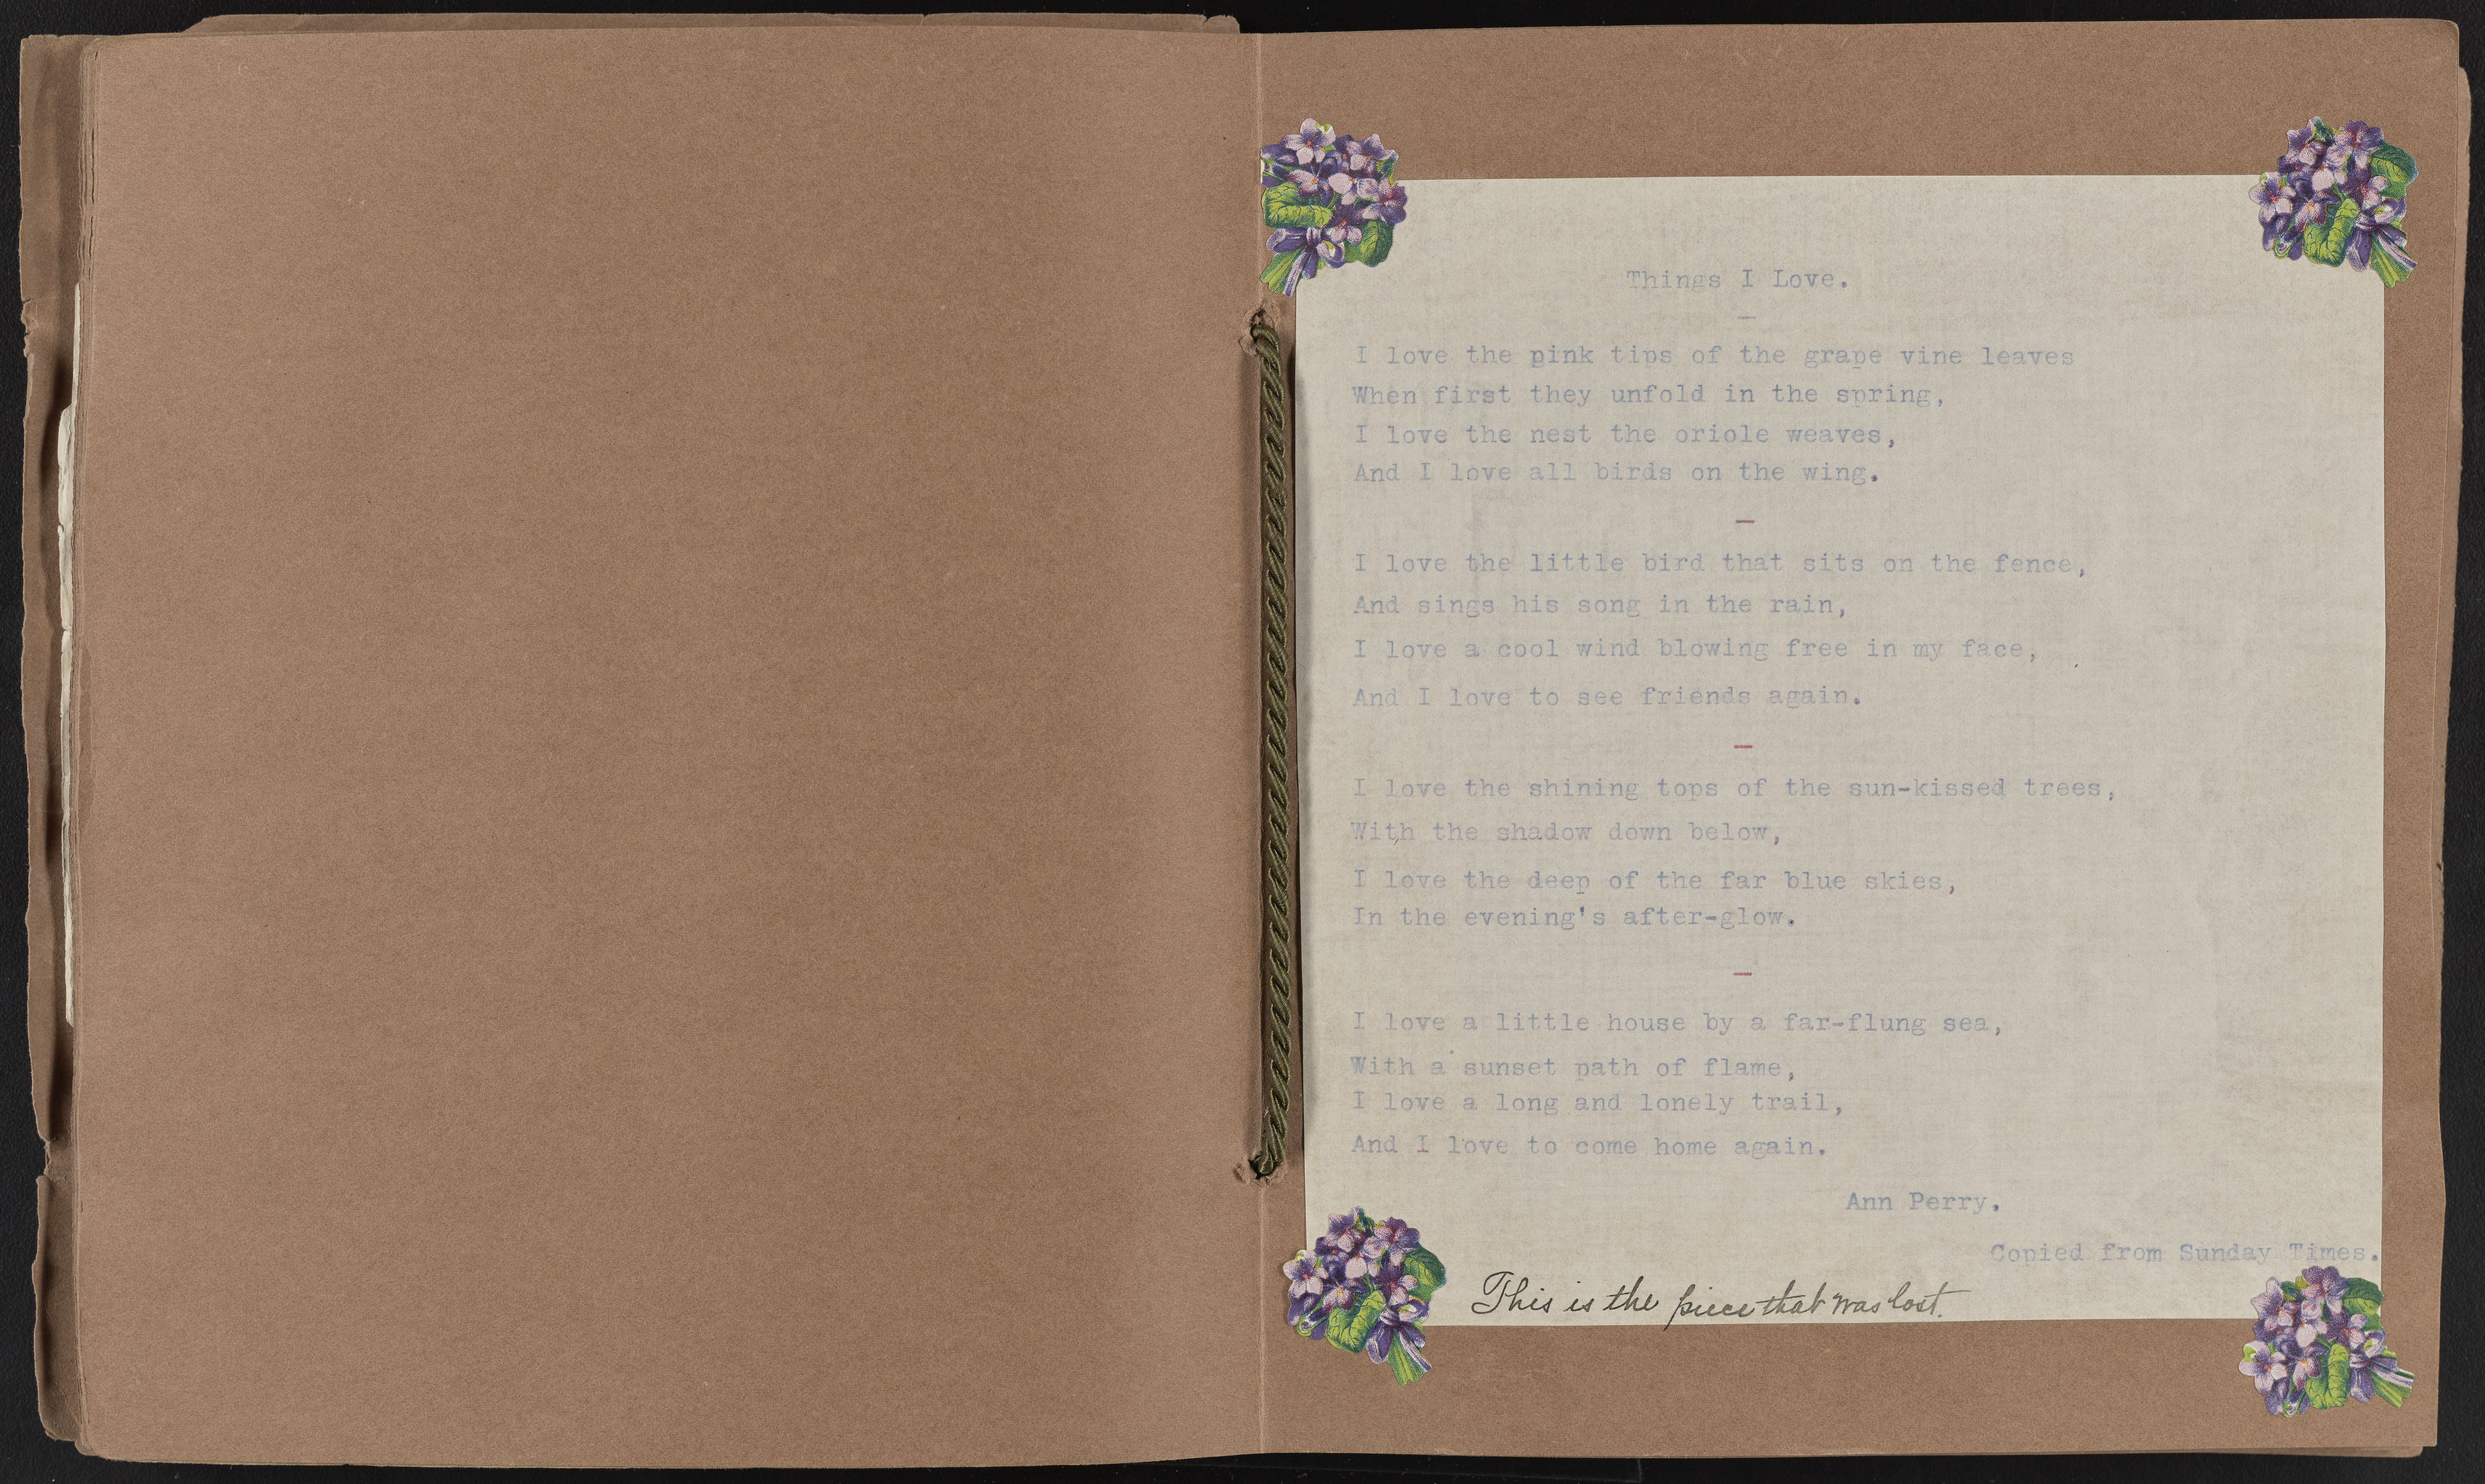 Things I Love.
I love the pink tips of the grape vine leaves
When first they unfold in the spring,
I love the nest the oriole weaves,
And I love all birds on the wing.
I love the little bird that sits on the fence,
And sings his song in the rain,
I love a cool wind blowing free in my face,
And I love to see friends again.
I love the shining tops of the sun-kissed trees,
With the shadow down below,
I love the deep of the far blue skies,
In the evening's after-glow.
I love a little house by a far-flung sea,
With a sunset path of flame,
I love a long and lonely trail,
And I love to come home again.
Ann Perry.
Copied from Sunday Times.
This is the piece that was lost.